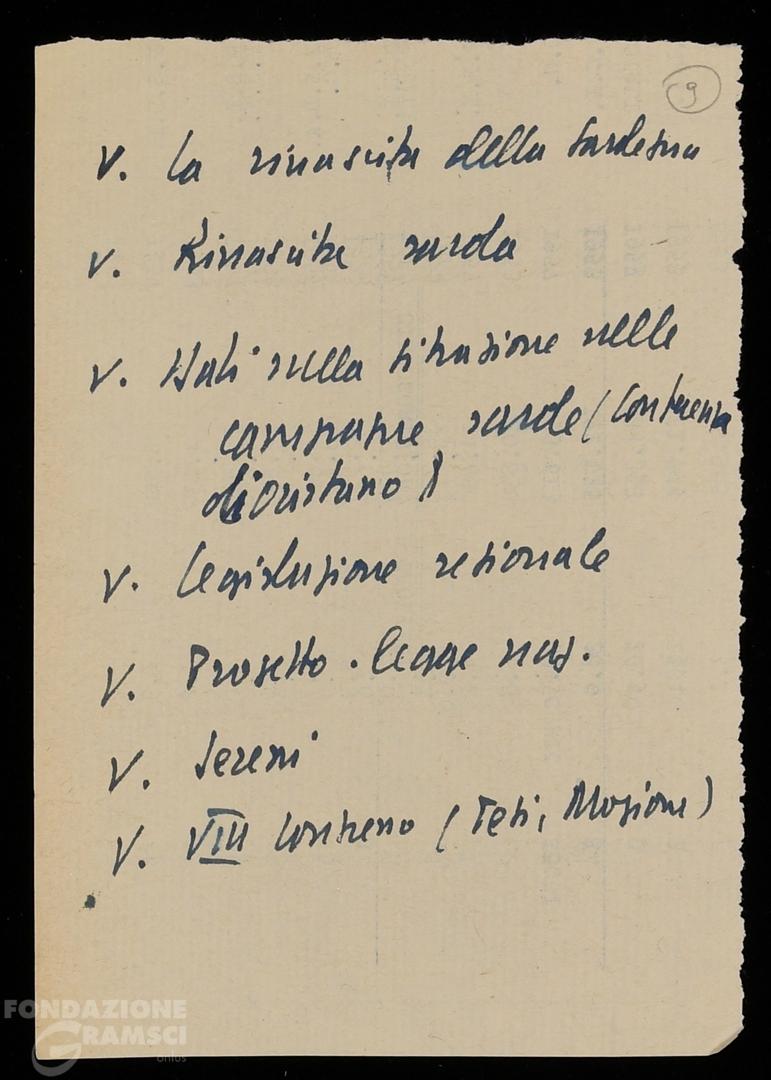 9
V. La rinascita della Sardegna
V. Rinascita sarda
V. Dati sulla situazione nelle
campagne sarde (Conferenza
di Oristano)
V. Legislazione regionale
V. Progetto. legge naz.
V. Sereni
V. VIII Congresso (Tesi, Mozione)
FONDAZIONE
GRAMSCI
onlus